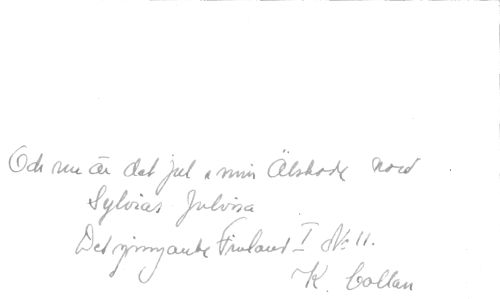 Och nu är det jul i min Älskade nord
Sylvias Julvisa
Det sjungande Finland I No 11.
K. Collan